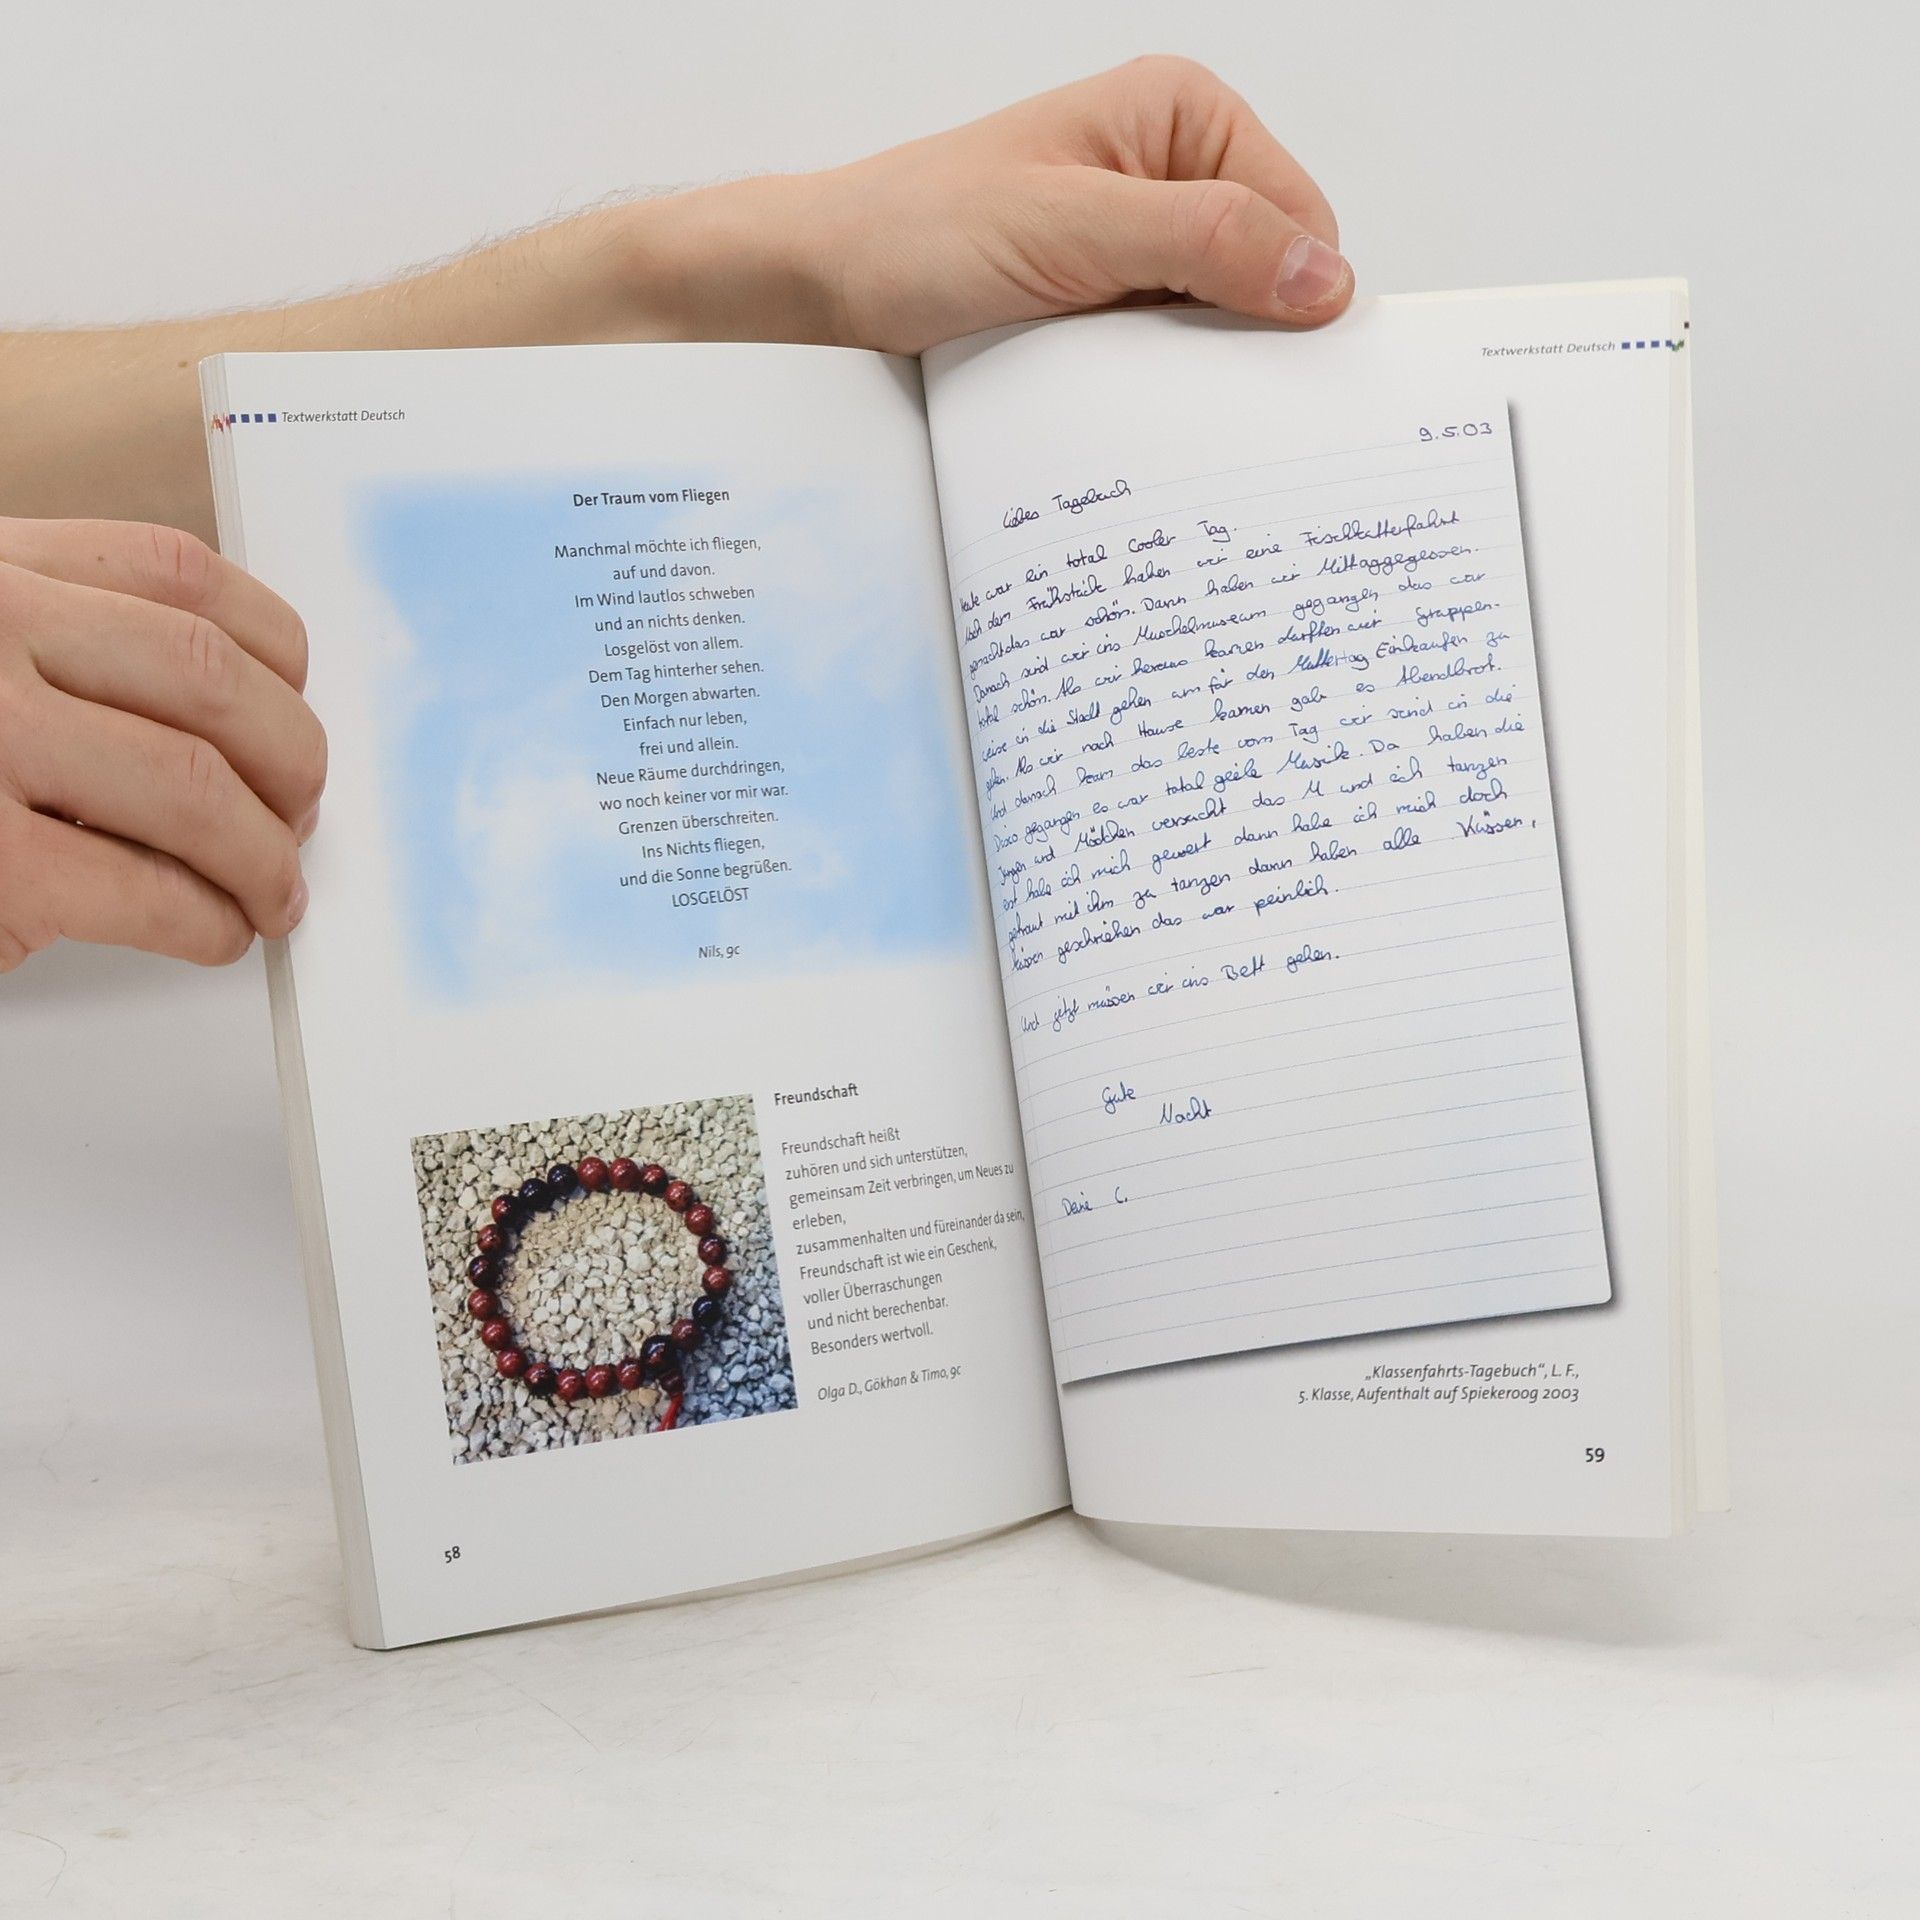 Textwerkstatt Deutsch
Der Traum vom Fliegen
Manchmal möchte ich fliegen,
auf und davon.
Im Wind lautlos schweben
und an nichts denken.
Losgelöst von allem.
Dem Tag hinterher sehen.
Den Morgen abwarten.
Einfach nur leben,
frei und allein.
Neue Räume durchdringen,
wo noch keiner vor mir war.
Grenzen überschreiten.
Ins Nichts fliegen,
und die Sonne begrüßen.
LOSGELÖST
Nils, 9c
Freundschaft
Freundschaft heißt
zuhören und sich unterstützen,
gemeinsam Zeit verbringen, um Neues zu
erleben,
zusammenhalten und füreinander da sein,
Freundschaft ist wie ein Geschenk,
voller Überraschungen
und nicht berechenbar.
Besonders wertvoll.
Olga D., Gökhan & Timo, 9c
58
Textwerkstatt Deutsch
9.5.03
Liebes Tagebuch
Heute war ein total cooler Tag.
Nach dem Frühstück haben wir eine Fischkutterfahrt
gemacht das war schön. Dann haben wir Mittaggegessen.
Danach sind wir ins Muschelmuseum gegangen das war
total schön. Als wir heraus kamen durften wir Gruppen-
weise in die Stadt gehen um für den Muttertag Einkaufen zu
gehen. Als wir nach Hause kamen gab es Abendbrot.
Und danach kam das beste vom Tag wir sind in die
Disco gegangen es war total geile Musik. Da haben die
Jungen und Mädchen versucht das M und ich tanzen
erst habe ich mich gewert dann habe ich mich doch
getraut mit ihm zu tanzen dann haben alle Küssen,
küssen geschriehen das war peinlich.
Und jetzt müssen wir ins Bett gehen.
Gute
Nacht
Deine C.
„Klassenfahrts-Tagebuch“, L. F.,
5. Klasse, Aufenthalt auf Spiekeroog 2003
59